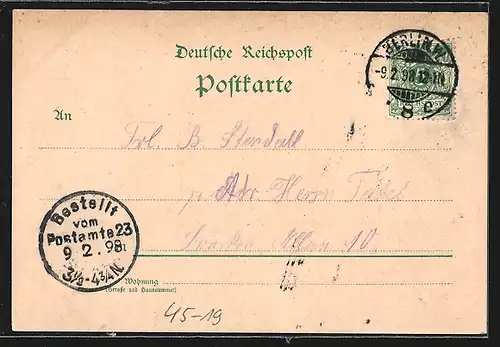 Deutsche Reichspost
Postkarte
BERLIN
-9.2.98.12-1N
8 e
An
Frl. B. Stendall
Herrn
10
Bestellt
vom
Postamte 23
9 2.98.
3½-4¾N.
Wohnung
(Straße und Hausnummer)
45-19